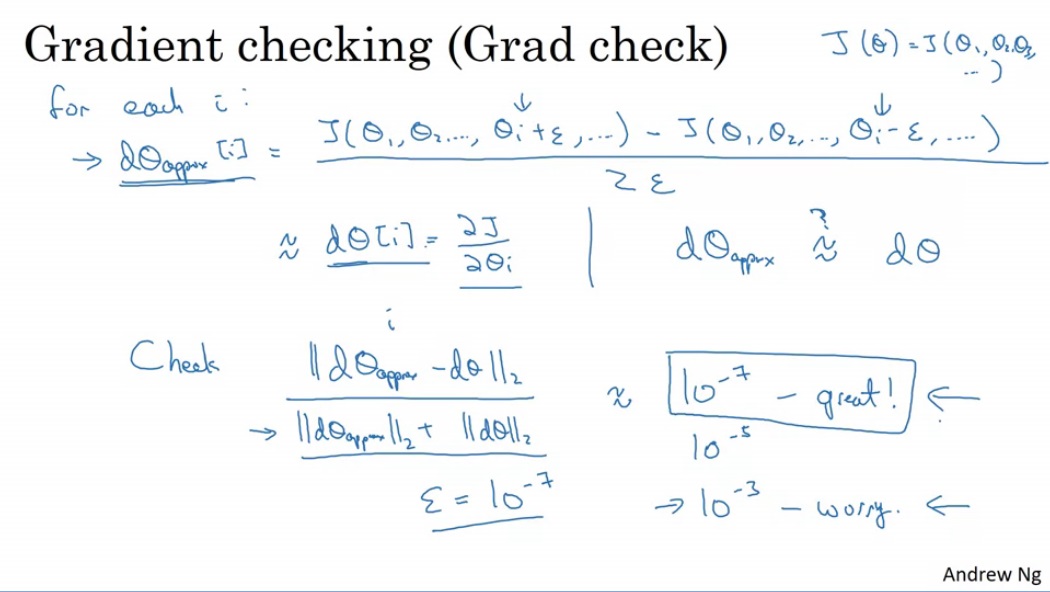 Gradient checking (Grad check)
J(θ) = J(θ₁, θ₂, θ₃, ...)
for each i:
→ dθapprox[i] = J(θ₁, θ₂, ..., θᵢ+ε, ...) - J(θ₁, θ₂, ..., θᵢ-ε, ...)
2ε
≈ dθ[i] = ∂J/∂θᵢ | dθapprox ≈? dθ
i
Check ||dθapprox - dθ||₂
→ ||dθapprox||₂ + ||dθ||₂
≈ 10⁻⁷ - great! ←
10⁻⁵
ε = 10⁻⁷
→ 10⁻³ - worry. ←
Andrew Ng